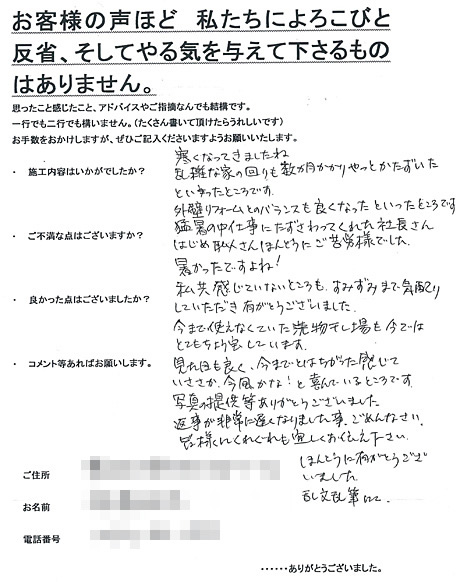 お客様の声ほど 私たちによろこびと
反省、そしてやる気を与えて下さるもの
はありません。
思ったこと感じたこと、アドバイスやご指摘なんでも結構です。
一行でも二行でも構いません。(たくさん書いて頂けたらうれしいです)
お手数をおかけしますが、ぜひご記入くださいますようお願いいたします。
寒くなってきましたね
・ 施工内容はいかがでしたか？
乱雑な家の回りも数か月かかりやっとかたずいた
といったところです。
外壁リフォームとのバランスも良くなったといったところです
・ ご不満な点はございますか？
猛暑の中仕事にたずさわってくれた社長さん
はじめ職人さんほんとうにご苦労様でした。
暑かったですよね!
私共感じていないところも、すみずみまで気配り
・ 良かった点はございましたか？
していただき有がとうございました。
今まで使えなくていた洗物干し場も今では
とてもちょう宝しています。
・ コメント等あればお願いします。
見た目も良く、今までとはちがった感じで
いささか、今風かな!と喜んでいるところです
写真の提供等ありがとうございました
返事が非常に遅くなりました事、ごめんなさい。
皆様にくれぐれも宜しくお伝え下さい。
ほんとうに有がとうござ
いました。
乱文乱筆にて、
ご住所
お名前
電話番号
・・・・・・ありがとうございました。